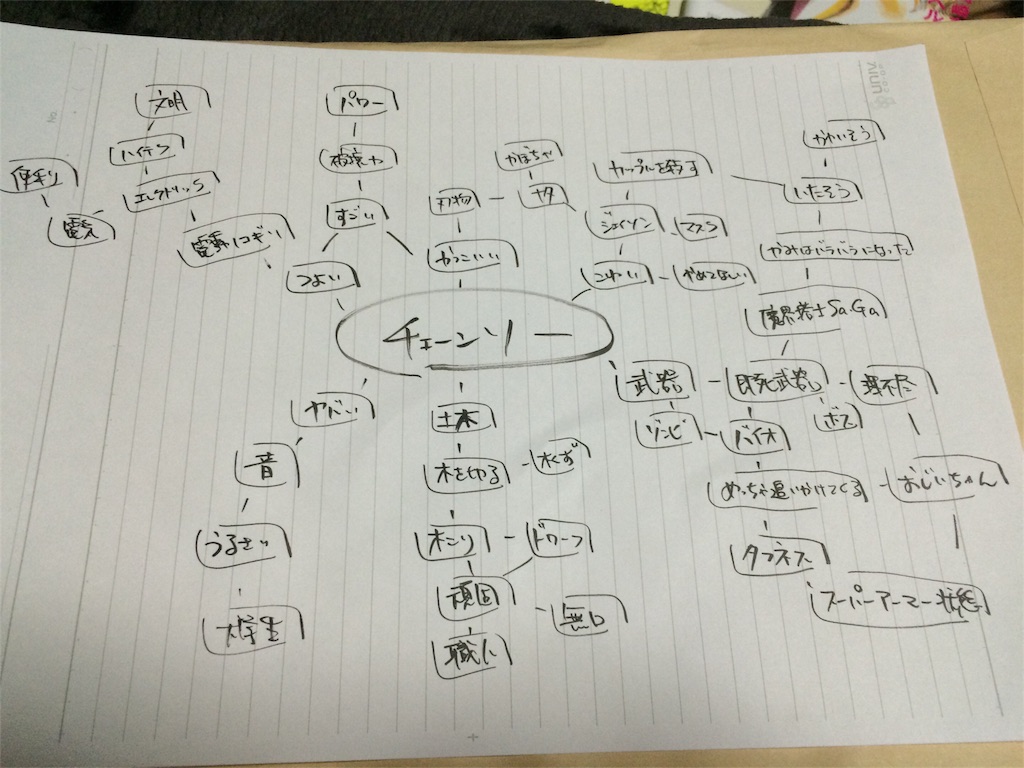 文明
パワー
ハイテク
便利
エレクトリック
電気
電動ノコギリ
破壊力
すごい
つよい
かぼちゃ
刃物
ナタ
かっこいい
カップルを殺す
ジェイソン
マスク
こわい
やめてほしい
かわいそう
いたそう
かみはバラバラになった
魔界塔士SaGa
チェーンソー
武器
即死武器
理不尽
ボス
ゾンビ
バイオ
めっちゃ追いかけてくる
おじいちゃん
タフネス
スーパーアーマー状態
ヤバい
音
うるさい
大学生
土木
木を切る
木くず
木こり
ドワーフ
頑固
無口
職人